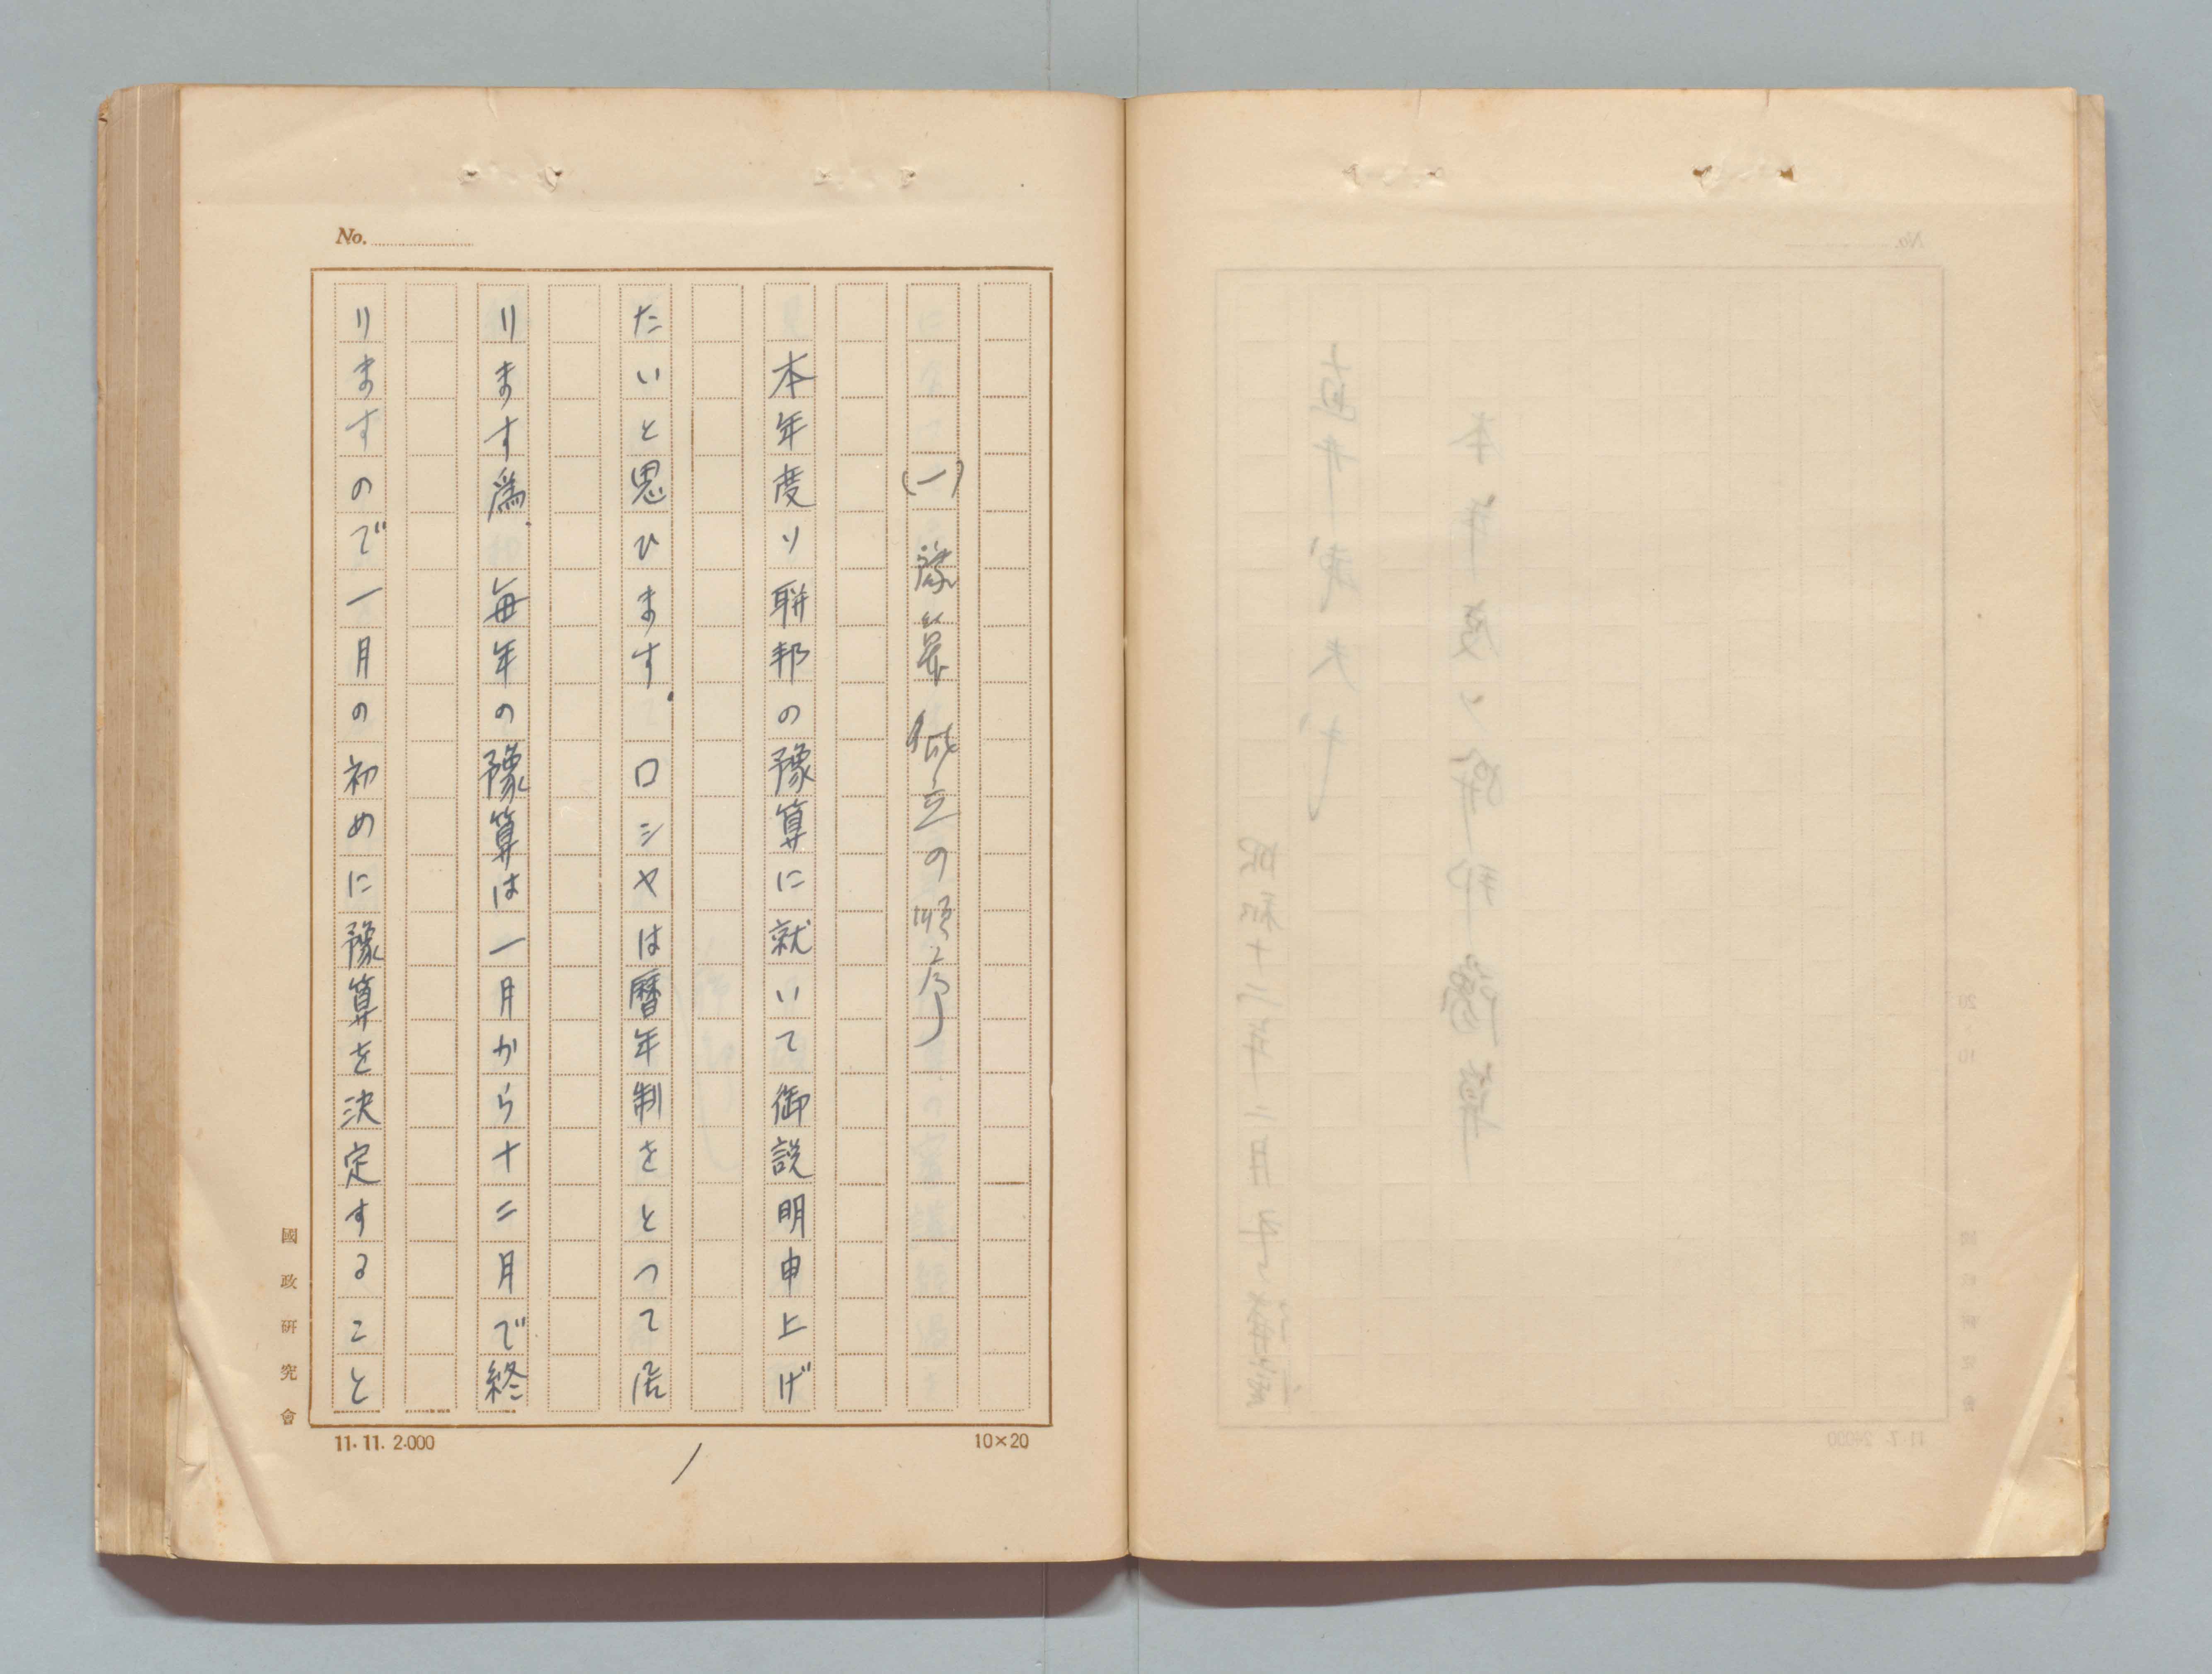 No.
(一)豫算成立の順序
本年度ソ聯邦の豫算に就いて御説明申上げ
たいと思ひます。ロシヤは暦年制をとつて居
ります爲、毎年の豫算は一月から十二月で終
りますので一月の初めに豫算を決定すること
國政研究會
11. 11. 2.000
10×20
1